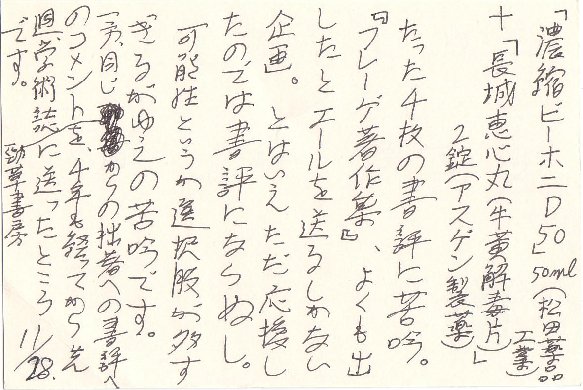 「濃縮ビーホニD50」50ml(松田薬品工業)
+「長城恵心丸(牛黄解毒片)」
2錠(アスゲン製薬)
たった4枚の書評に苦吟。
『フレーゲ著作集』、よくも出
したとエールを送るしかない
企画。とはいえただ応援し
たのでは書評にならぬし。
可能性というか選択肢が多す
ぎるがゆえの苦吟です。
一方、同じ からの拙著への書評へ
のコメントを、4年も経ってから先
週、学術誌に送ったところ
です。
勁草書房
11/28.